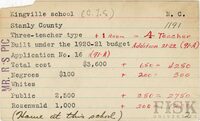 Kingville school (C.T.S) N. C.
Stanly County 1191
Three-teacher type + 1 Room = 4 Teacher
Built under the 1920-21 budget Addition 21-22 (91-A)
Application No. 16 (91-A)
Total cost $3,600 + 1650 = $5250
Negroes $100 + 200 = 300
Whites
Public 2,500 + 250 = 2750
Rosenwald 1,000 + 
(Home at this school)
MR. S'S PIC
FISK